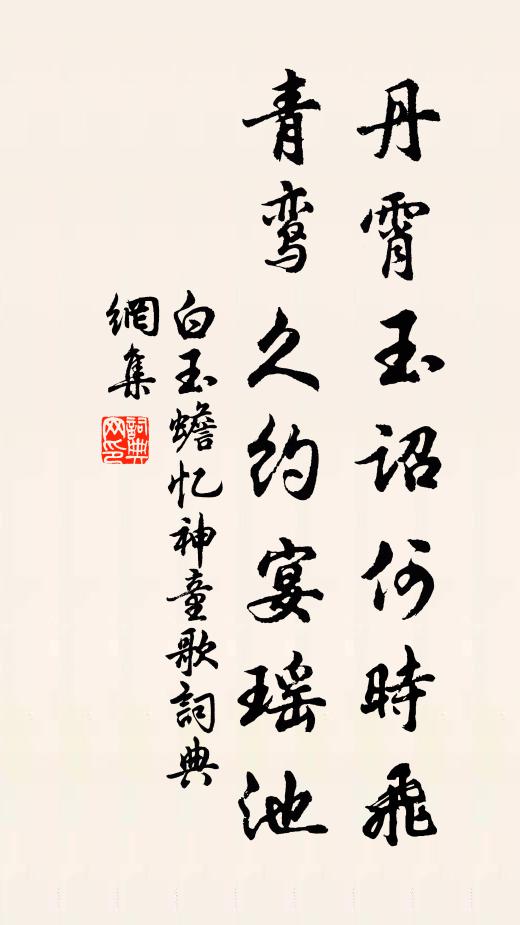 丹霄玉詔何時飛
青鸾久约宴瑶池
白玉蟾忆神童歌詞典
網集
詞典网印